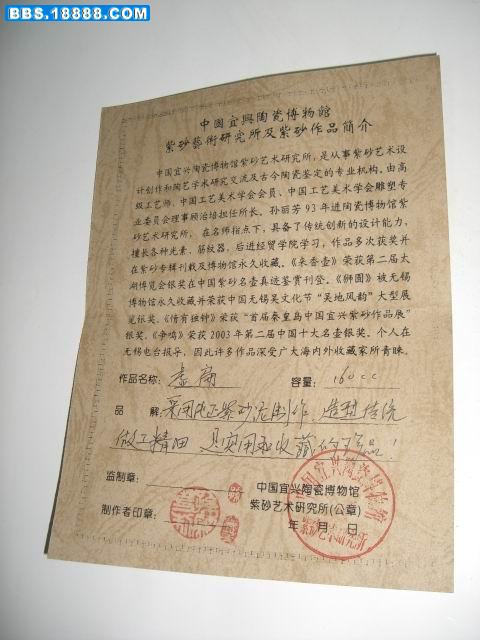 BBS.18888.COM
中国宜興陶瓷博物館
紫砂藝術研究所及紫砂作品简介
中国宜兴陶瓷博物馆紫砂艺术研究所,是从事紫砂艺术设
计创作和陶艺学术研究交流及古今陶瓷鉴定的专业机构。由高
级工艺师、中国工艺美术学会会员、中国工艺美术学会雕塑专
业委员会理事顾治培担任所长。孙丽芳93年进陶瓷博物馆紫
砂艺术研究所,在名师指点下,具备了传统创新的设计能力,
擅长各种光素、筋纹器,后进经贸学院学习,作品多次获奖并
在紫砂专辑刊载及博物馆永久收藏。《采香壶》荣获第二届太
湖博览会银奖在中国紫砂名壶真迹鉴赏刊登。《狮圆》被无锡
博物馆永久收藏并荣获中国无锡吴文化节“吴地风韵”大型展
览银奖。《情有独钟》荣获“首届秦皇岛中国宜兴紫砂作品展”
银奖。《争鸣》荣获2003年第二届中国十大名壶银奖。个人在
无锡电台报导,因此许多作品深受广大海内外收藏家所青睐。
作品名称: 容量: 160cc
品 解: 采用 紫砂泥制作,造型传统
做工精细 具实用和收藏的 品!
监制章:
中国宜兴陶瓷博物馆
紫砂艺术研究所(公章)
制作者印章:
年 月 日